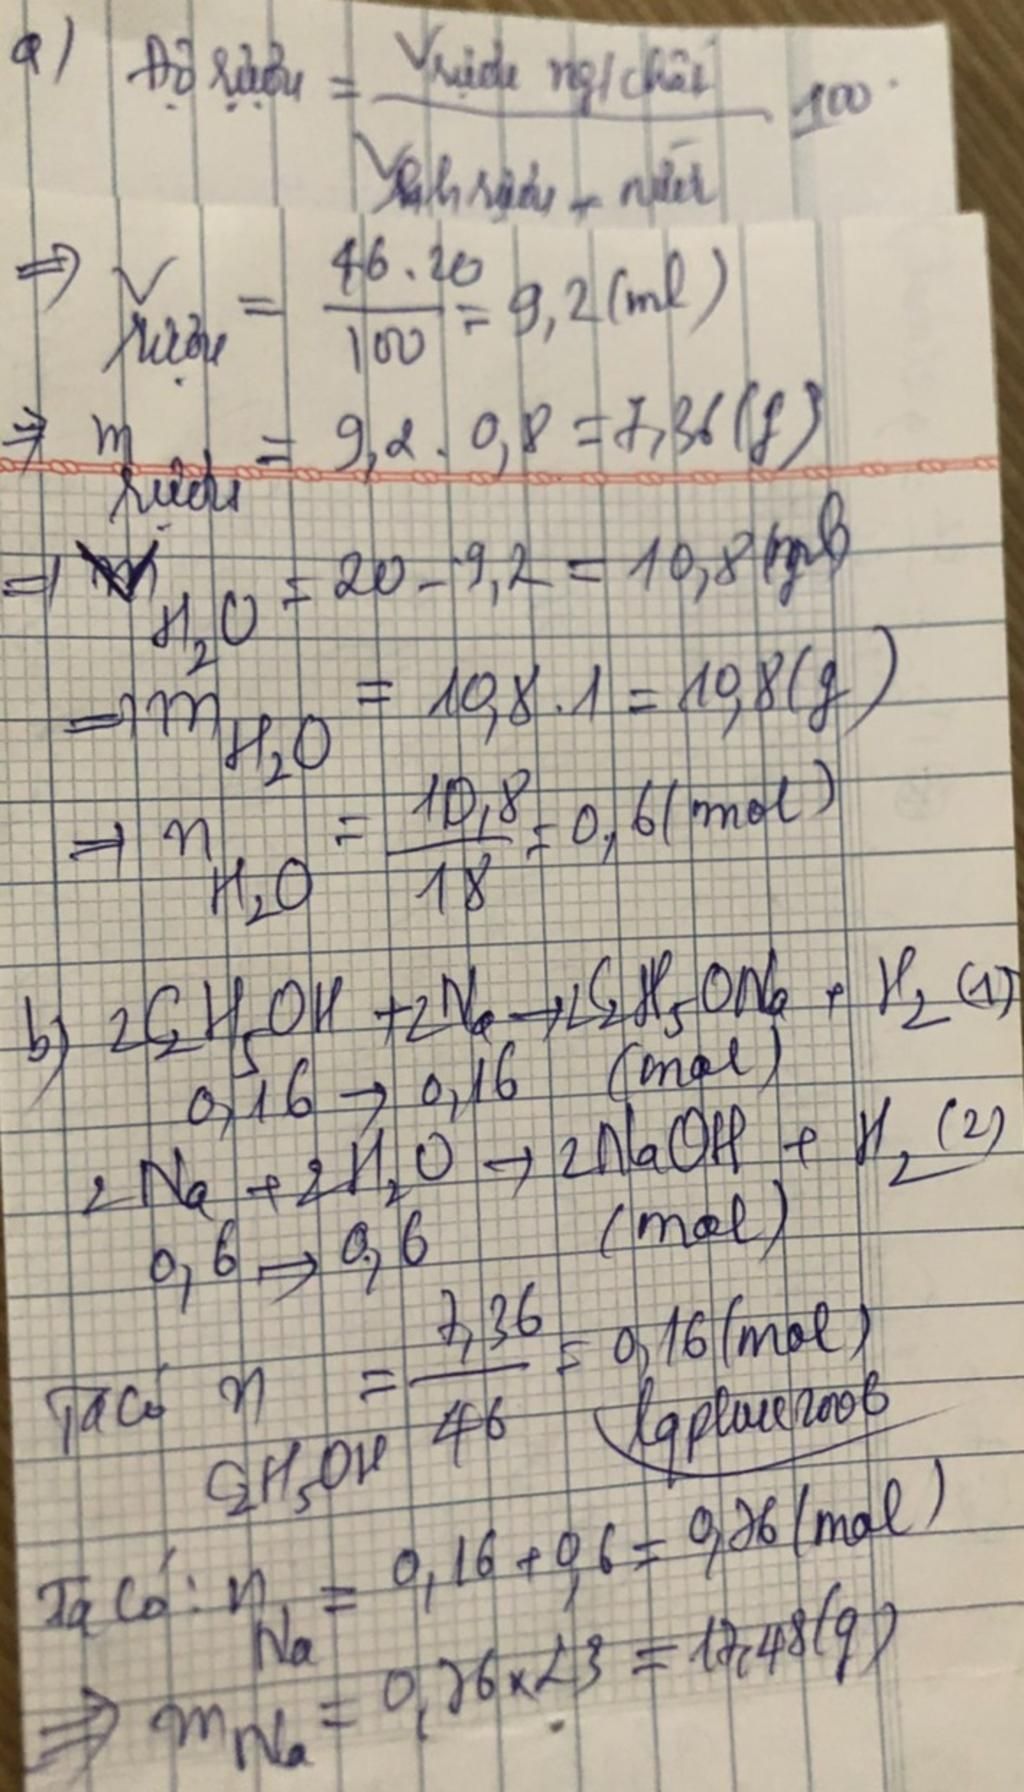 a) Độ rượu = V rượu ng/chất / V hh rượu + nước . 100
⇒ V rượu = 46.20 / 100 = 9,2 (ml)
⇒ m rượu = 9,2 . 0,8 = 7,36 (g)
⇒ V H₂O = 20 - 9,2 = 10,8 (ml)
⇒ m H₂O = 10,8 . 1 = 10,8 (g)
⇒ n H₂O = 10,8 / 18 = 0,6 (mol)
b) 2C₂H₅OH + 2Na → 2C₂H₅ONa + H₂ (1)
0,16 → 0,16 (mol)
2Na + 2H₂O → 2NaOH + H₂ (2)
0,6 → 0,6 (mol)
Ta có n C₂H₅OH = 7,36 / 46 = 0,16 (mol)
Ta có: n Na = 0,16 + 0,6 = 0,76 (mol)
⇒ m Na = 0,76 x 23 = 17,48 (g)